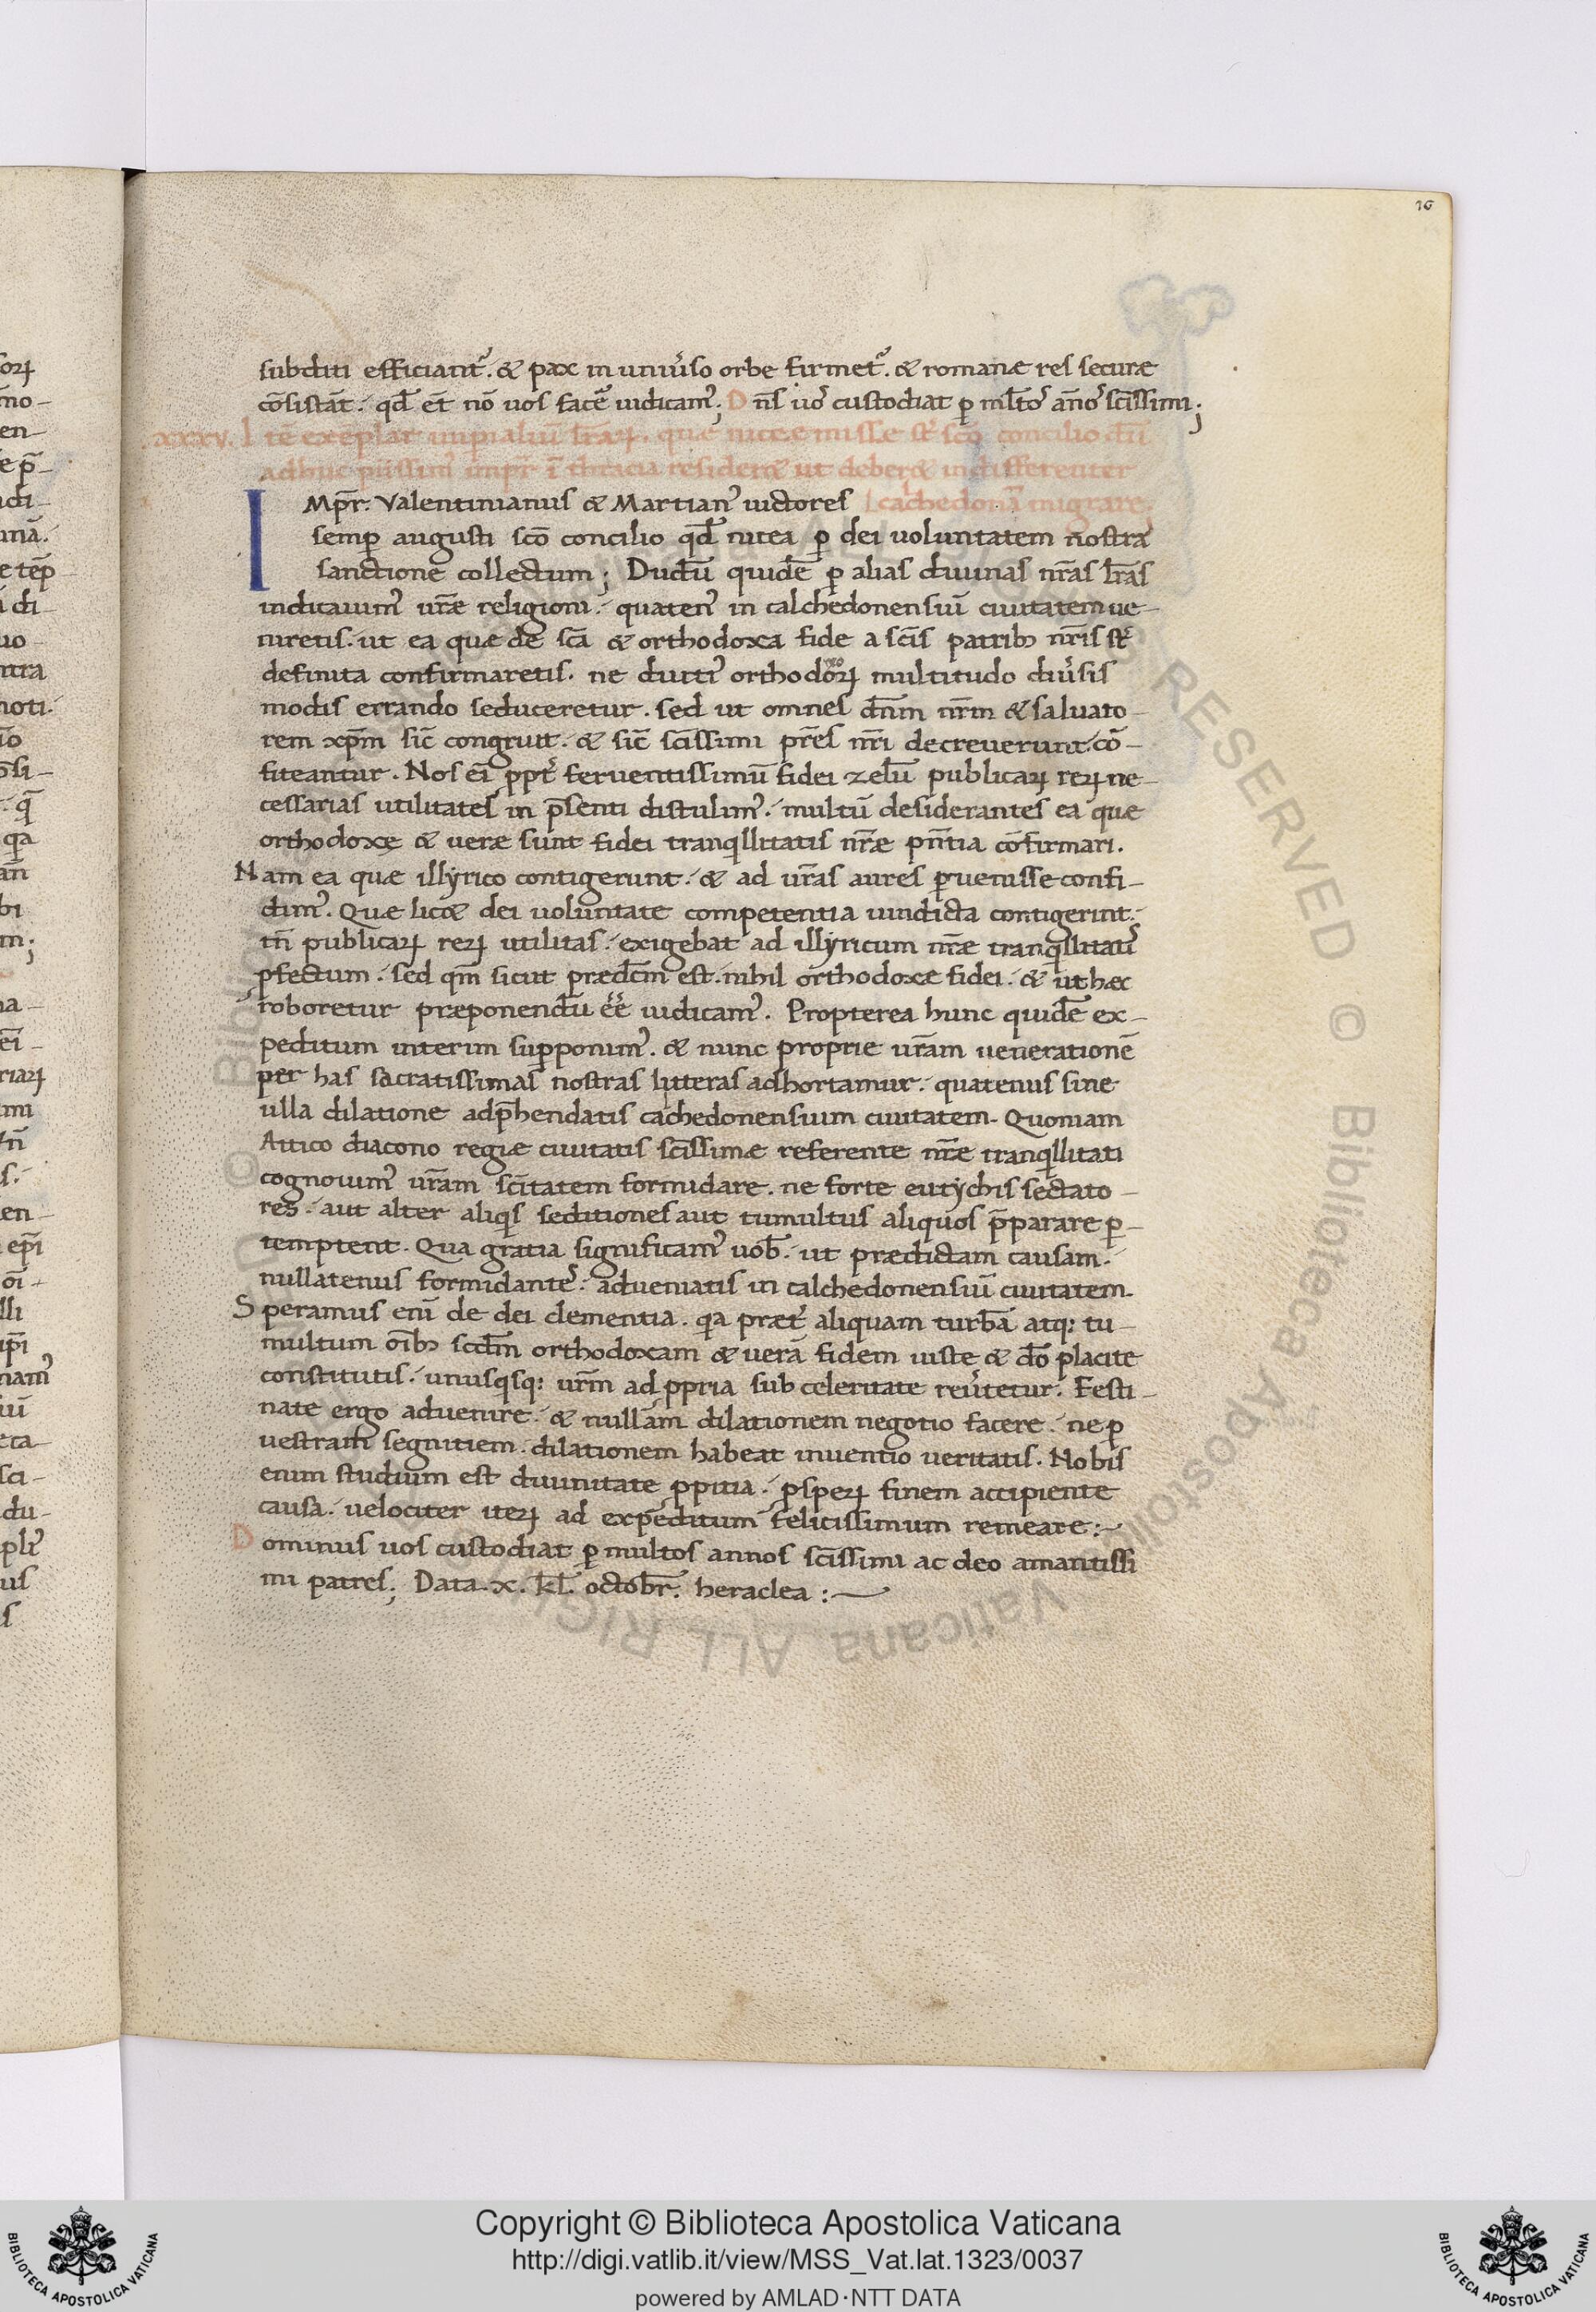 16
subditi efficiant᷑. & pax in uniu᷑so orbe firmet᷑. & romanæ res securæ
cōsistāt. qd̄ et̄ nō uos facē iudicam᷒; D n̄s uos᷒ custodiat ꝑ ml̄tos᷒ an̄os᷒ sc̄issimi;
xxxv. I tē exēplar imꝑialiū lr̄aꝝ. quæ niceę missę st᷑ sc̄o concilio cū
adhuc piissim᷒ impr̄ ī thracia residerꝫ & ut deber& indifferenter
I Mpr̄. Valentinianus & Martian᷒ uictores cachedonā migrare.
semꝑ augusti sc̄o concilio qd̄ nicea ꝑ dei uoluntatem nostrā
sanctione collectum; Dudū quidē ꝑ alias diuinas nr̄as lr̄as
indicauim᷒ ur̄æ religioni. quaten᷒ in calchedonensiū ciuitatem ue-
niretis. ut ea quæ de sc̄a & orthodoxa fide a sc̄is patribꝫ nr̄is st᷑
definita confirmaretis. ne diuti᷒ orthodoxoꝝ multitudo diu᷑sis
modis errando seduceretur. sed ut omnes dn̄m nr̄m & saluato-
rem xp̄m sic̄ congruit. & sic̄ sc̄issimi pr̄es nr̄i decreuerunt. cō-
fiteantur. Nos ei̅ ꝓpt᷑ feruentissimū fidei zelū publicaꝝ reꝝ ne-
cessarias utilitates in p̄senti distulim᷒. multū desiderantes ea quæ
orthodoxę & ueræ sunt fidei tranqillitatis nr̄æ pn̄tia cōfirmari.
Nam ea quæ illyrico contigerunt. & ad ur̄as aures ꝑuenisse confi-
dim᷒. Quæ lic& dei uoluntate competentia uindicta contigerint.
tn̄ publicaꝝ reꝝ utilitas. exigebat ad illyricum nr̄æ tranqillitatis᷒
ꝓfectum. sed qm̄ sicut prædcm̄ est. nihil orthodoxæ fidei. & ut hæc
roboretur præponendū ee᷑ iudicam᷒. Propterea hunc quidē ex-
peditum interim supponim᷒. & nunc proprie ur̄am uenerationē
per has sacratissimas nostras litteras adhortamur. quatenus sine
ulla dilatione adp̄hendatis cachedonensium ciuitatem. Quoniam
Attico diacono regiæ ciuitatis sc̄issimæ referente nr̄æ tranqillitati
cognouim᷒ ur̄am sc̄itatem formidare. ne forte eutychis sectato-
res. aut alter aliqis seditiones aut tumultus aliquos p̄parare ꝑ-
temptent. Qua gratia significam᷒ uob̄. ut prædictam causam.
nullatenus formidantes᷒. adueniatis in calchedonensiū ciuitatem.
Speramus eni̅ de dei clementia. qa præt᷑ aliquam turbā atq: tu-
multum oi̅bꝫ scdm̄ orthodoxam & uerā fidem iuste & dō placite
constitutis. unusqsq: ur̄m ad ꝓpria sub celeritate reu᷑tetur. Festi-
nate ergo aduenire. & nullam dilationem negotio facere. ne ꝑ
uestram segnitiem. dilationem habeat inuentio ueritatis. Nobis
enim studium est diuinitate ꝓpitia. ꝓsperꝝ finem accipiente
causa. uelociter iterꝝ ad expeditum felicissimum remeare:~
D ominus uos custodiat ꝑ multos annos sc̄issimi ac deo amantissi
mi patres; Data. x. kl̄. octobr̄. heraclea :—
Copyright © Biblioteca Apostolica Vaticana
http://digi.vatlib.it/view/MSS_Vat.lat.1323/0037
powered by AMLAD·NTT DATA